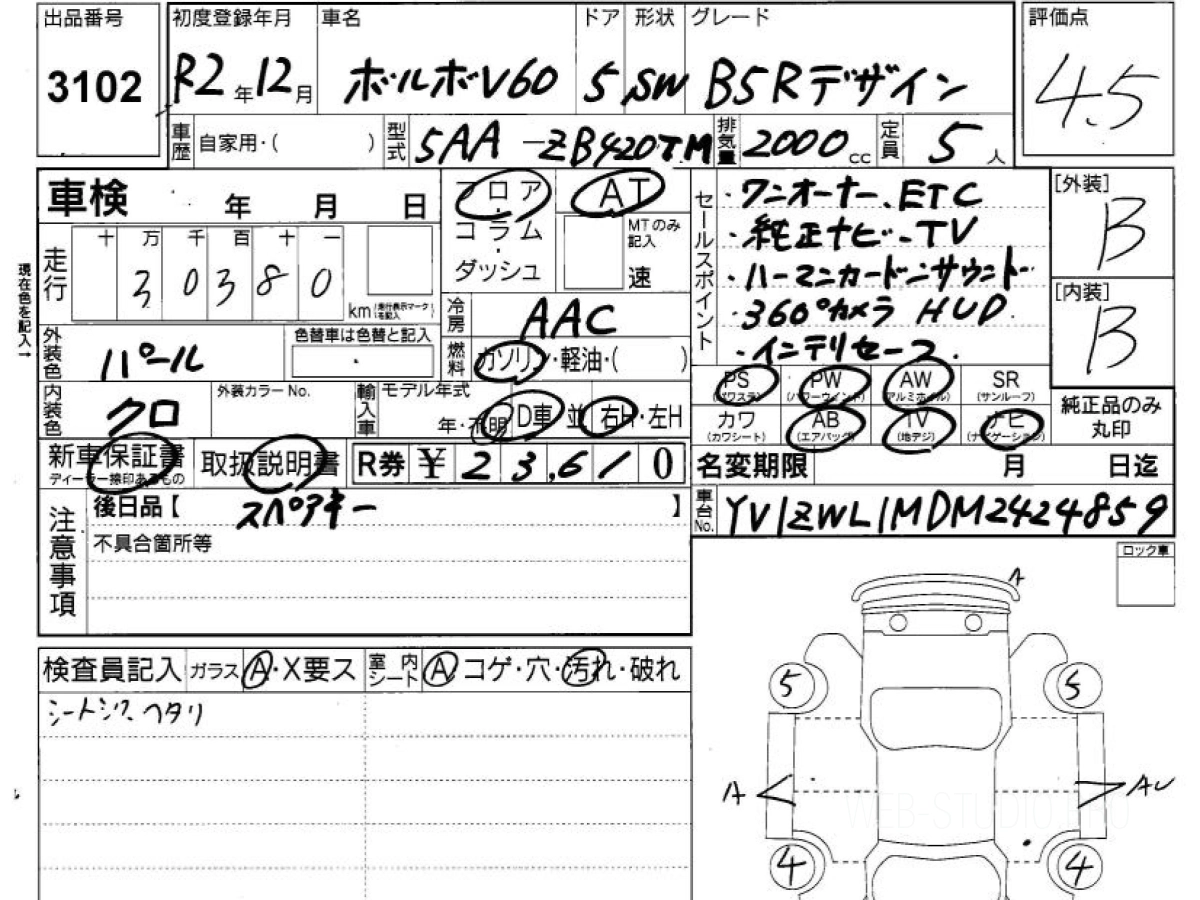 出品番号 初度登録年月 車名 ドア 形状 グレード 評価点
3102 R2年12月 ボルボV60 5 SW B5 Rデザイン 4.5
車歴 自家用・( ) 型式 5AA-ZB420TM 排気量 2000cc 定員 5人
車検 年 月 日
フロア AT
コラム
・
ダッシュ
MTのみ記入
速
セールスポイント
・ワンオーナー、ETC
・純正ナビ-TV
・ハーマンカードンサウンド
・360°カメラ HUD
・インテリセーフ.
[外装]
B
[内装]
B
現在色を記入→
走行 十 万 千 百 十 一
30380
km(走行表示マークを記入)
冷房 AAC
外装色 パール
色替車は色替と記入
燃料 ガソリン・軽油・( )
内装色 クロ
外装カラーNo.
輸入車 モデル年式
年・不明 D車 並 右H・左H
PS (パワステ) PW (パワーウインド) AW (アルミホイル) SR (サンルーフ)
カワ (カワシート) AB (エアバッグ) TV (地デジ) ナビ (ナビゲーション)
純正品のみ
丸印
新車保証書 取扱説明書 R券 ¥ 23,610
ディーラー捺印あるもの
名変期限 月 日迄
注意事項
後日品【 スペアキー 】
不具合箇所等
車台No. YV1ZWL1MDM2424859
ロック車
A
検査員記入 ガラス A・X要ス 室内シート A コゲ・穴・汚れ・破れ
シートシワ、ヘタリ
5 5
A AU
WEB-STUDIO.PRO
4 4